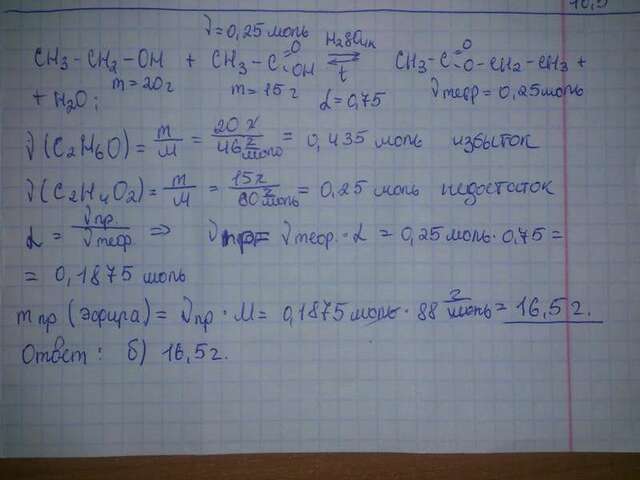 16,5
ν = 0,25 моль
CH3 - CH2 - OH + CH3 - C =O -OH H2SO4к ⇄ t CH3 - C =O -O - CH2 - CH3 +
m = 20 г m = 15 г α = 0,75 νтеор = 0,25 моль
+ H2O;
ν (C2H6O) = m/M = 20 г / 46 г/моль = 0,435 моль избыток
ν (C2H4O2) = m/M = 15 г / 60 г/моль = 0,25 моль недостаток
α = νпр. / νтеор ⇒ νпр = νтеор. · α = 0,25 моль · 0,75 =
= 0,1875 моль
mпр (эфира) = νпр · M = 0,1875 моль · 88 г/моль = 16,5 г.
Ответ: б) 16,5 г.